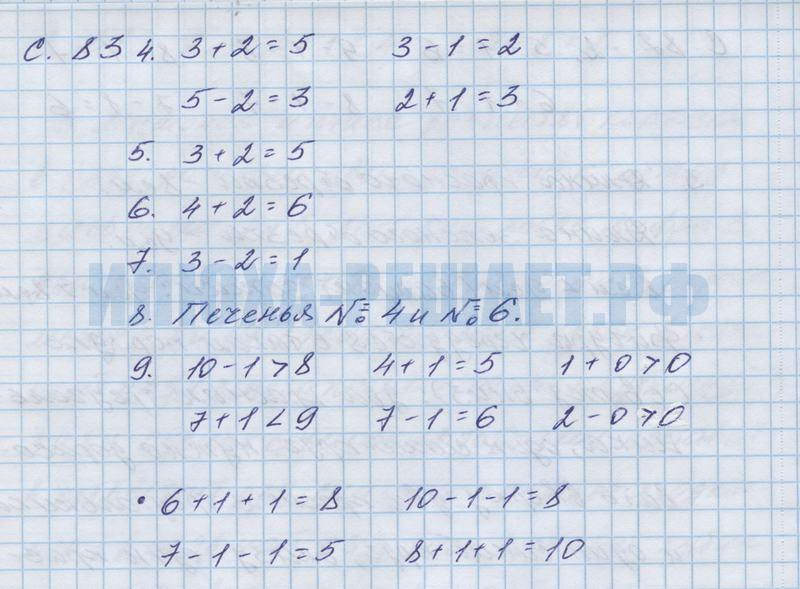 С. 83 4. 3+2=5 3-1=2
5-2=3 2+1=3
5. 3+2=5
6. 4+2=6
7. 3-2=1
ИЛЮХА-РЕШАЕТ.РФ
8. Печенья № 4 и № 6.
9. 10-1>8 4+1=5 1+0>0
7+1<9 7-1=6 2-0>0
• 6+1+1=8 10-1-1=8
7-1-1=5 8+1+1=10